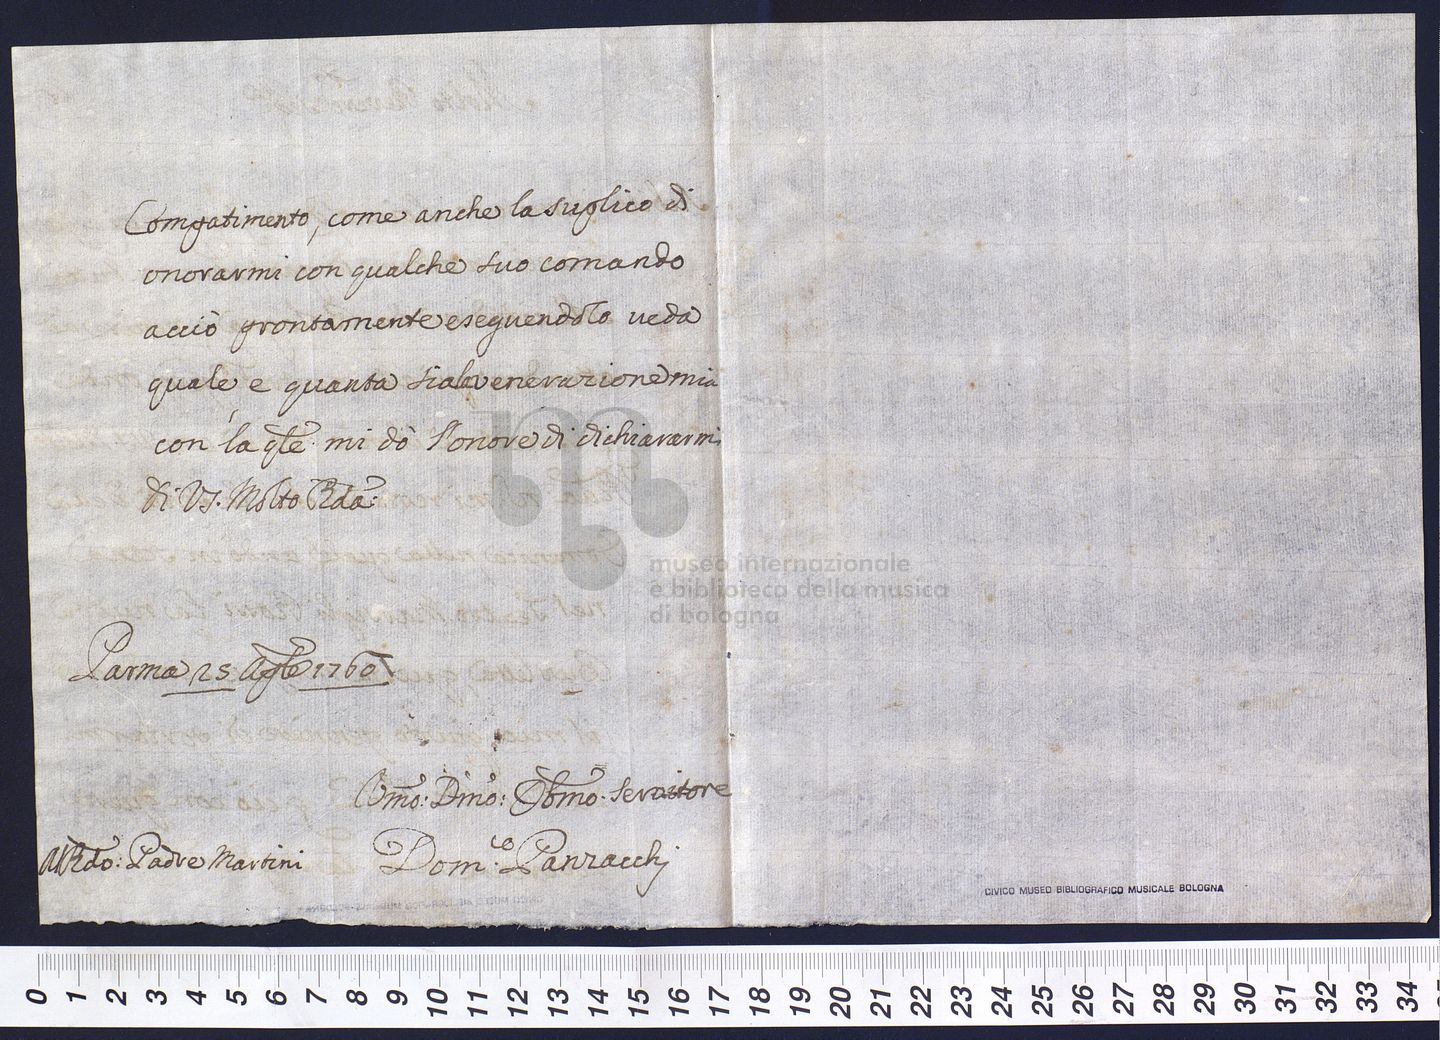 Compatimento, come anche la suplico di
onorarmi con qualche suo comando
acciò prontamente eseguendolo veda
quale e quanta sia la venerazione mia
con la qle mi dò l'onore di dichiararmi
di VS. Molto Rda:
Parma 25 Agto 1760
Umo: Dmo: Obmo. Servitore
Al Rdo: Padre Martini
Dom.co Panzacchi
museo internazionale
e biblioteca della musica
di bologna
CIVICO MUSEO BIBLIOGRAFICO MUSICALE BOLOGNA
0 1 2 3 4 5 6 7 8 9 10 11 12 13 14 15 16 17 18 19 20 21 22 23 24 25 26 27 28 29 30 31 32 33 34